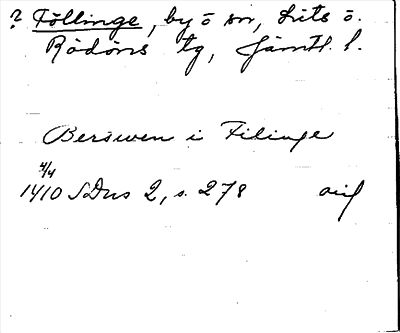 ? Föllinge, by o sn, Lits o.
Rödöns tg, Jämtl. l.
Berswen i Filinge
4/4
1410 SDns 2, s. 278 avs